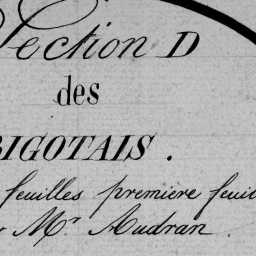 Section D
des
BIGOTAIS.
feuilles première feuil
Mr Audran.